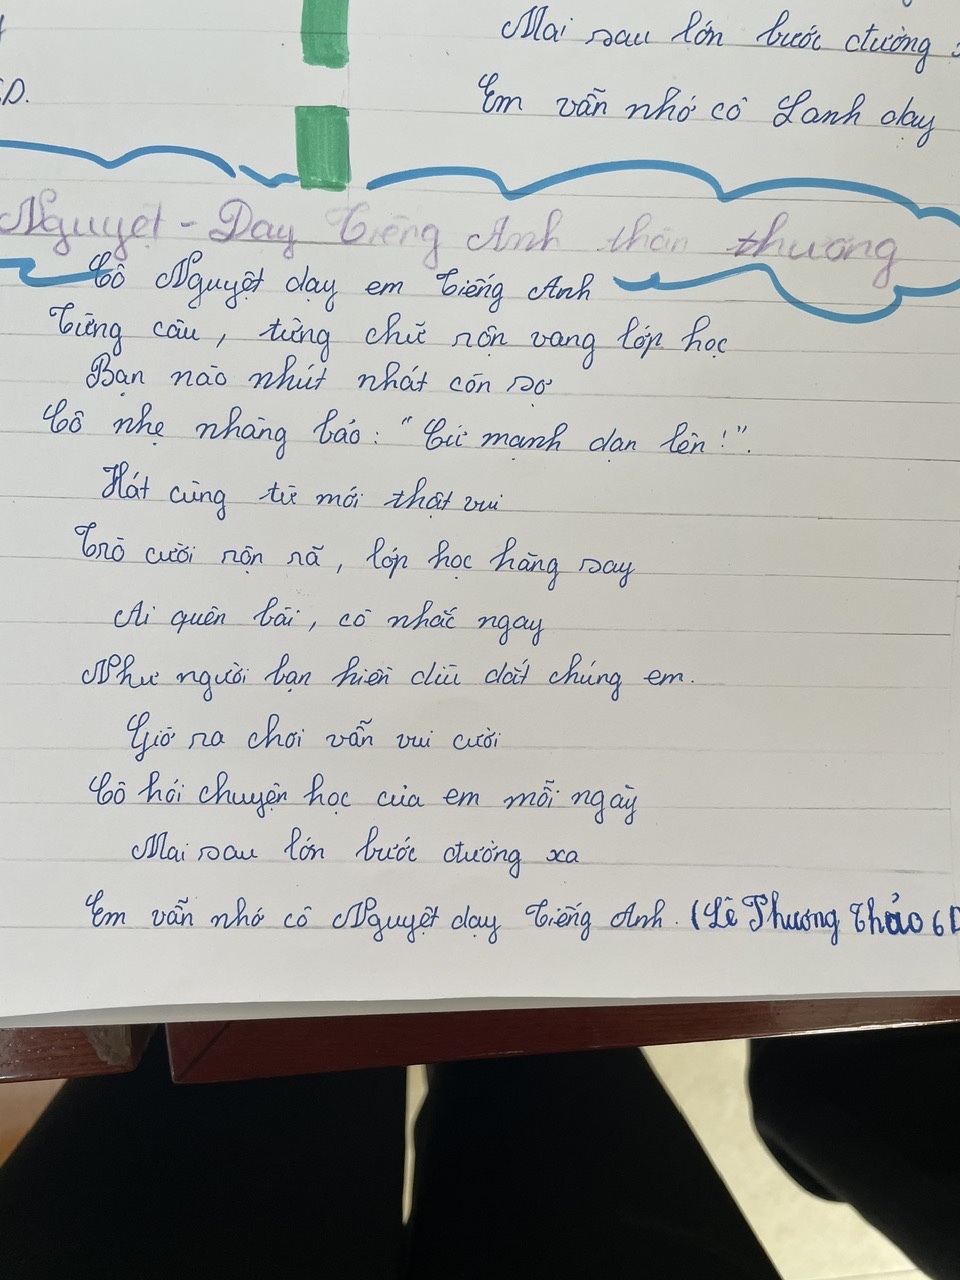 Mai sau lớn bước đường
Em vẫn nhớ cô Lanh dạy
D.
Nguyệt - Dạy Tiếng Anh thân thương
Cô Nguyệt dạy em Tiếng Anh
Từng câu, từng chữ rộn vang lớp học
Bạn nào nhút nhát còn sợ
Cô nhẹ nhàng bảo: "Cứ mạnh dạn lên!".
Hát cùng từ mới thật vui
Trò cười rộn rã, lớp học hăng say
Ai quên bài, cô nhắc ngay
Như người bạn hiền dìu dắt chúng em.
Giờ ra chơi vẫn vui cười
Cô hỏi chuyện học của em mỗi ngày
Mai sau lớn bước đường xa
Em vẫn nhớ cô Nguyệt dạy Tiếng Anh. (Lê Phương Thảo 6D